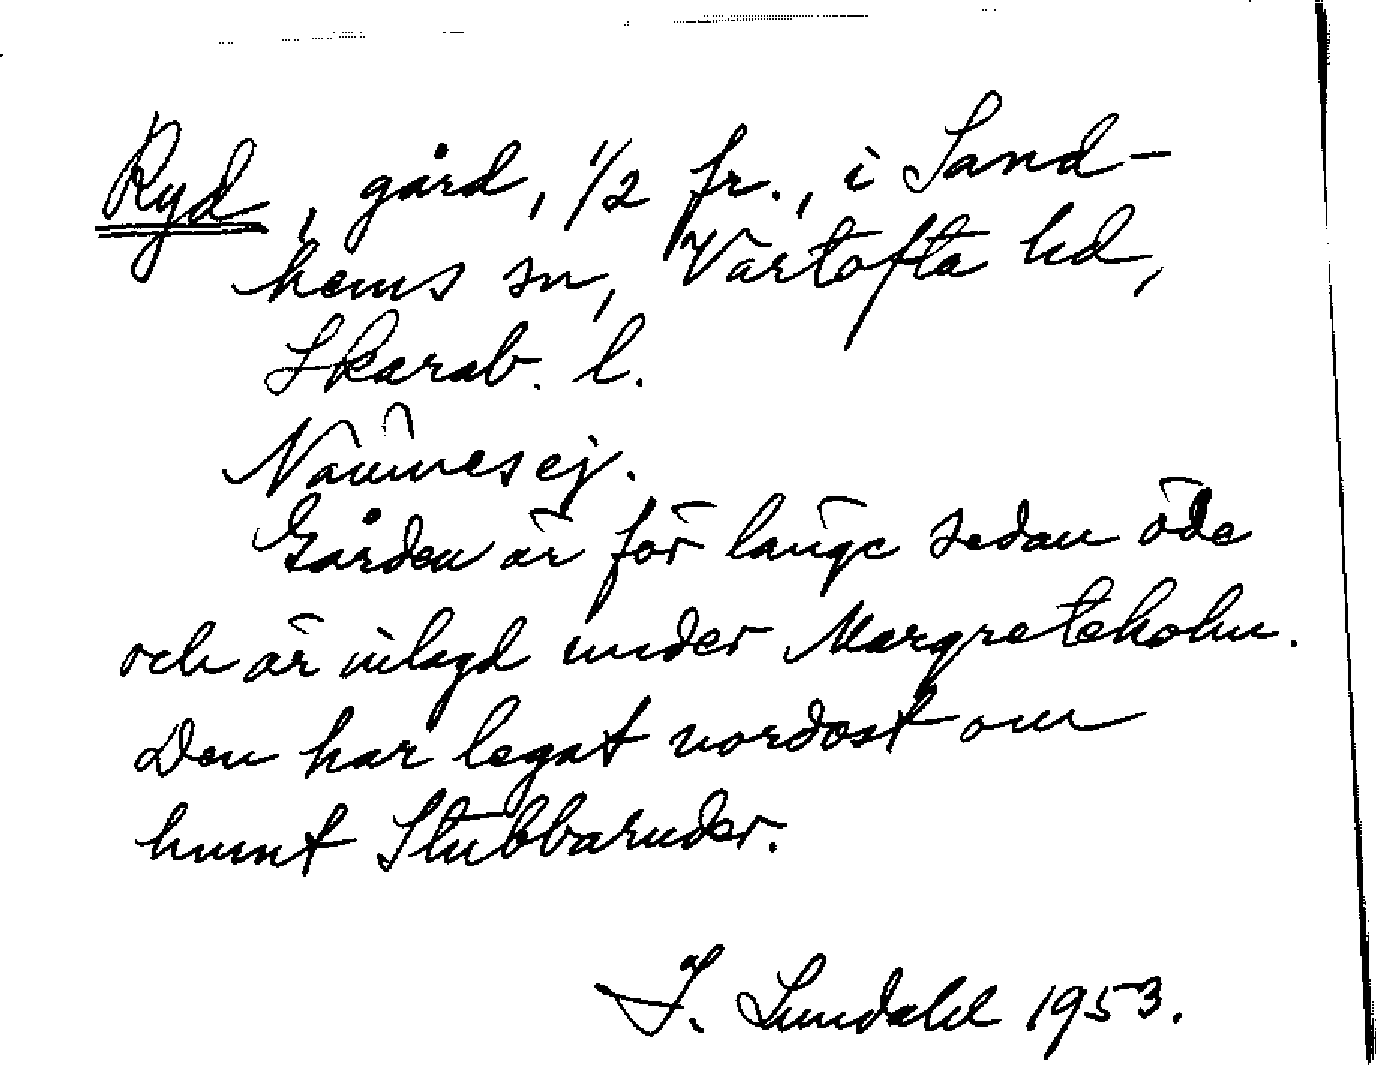 Ryd, gård, 1/2 fr., i Sand-
hems sn, Vartofta hd,
Skarab. l.
Nämnes ej.
Gården är för länge sedan öde
och är inlagd under Margreteholm.
Den har legat nordost om
kunt Stubbaruder.
I. Lundahl 1953.